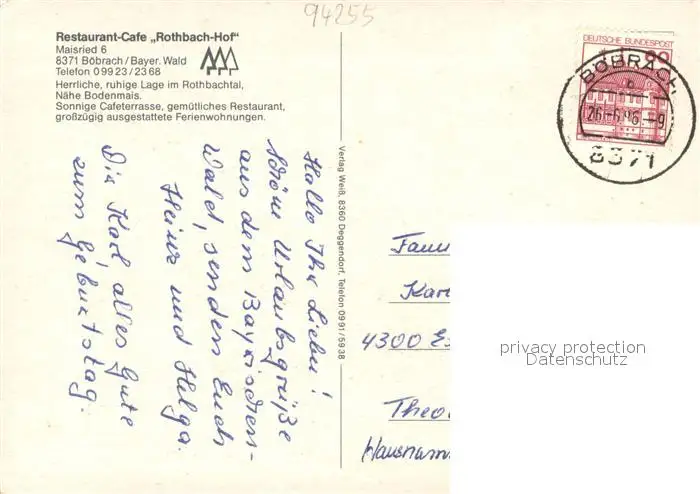 94255
Restaurant-Cafe „Rothbach-Hof“
Maisried 6
8371 Böbrach/Bayer. Wald
Telefon 0 99 23 / 23 68
Herrliche, ruhige Lage im Rothbachtal,
Nähe Bodenmais.
Sonnige Cafeterrasse, gemütliches Restaurant,
großzügig ausgestattete Ferienwohnungen.
Hallo Ihr Lieben!
Schöne Urlaubsgrüße
aus dem Bayrischen-
Wald, senden Euch
Heinz und Helga.
Dir Karl alles Gute
zum Geburtstag.
Verlag Weiß, 8360 Deggendorf, Telefon 0991/5938
DEUTSCHE BUNDESPOST
BÖBRACH
b
26.-6.86.-9
8371
Fam
Kar
4300 Es
Theo
Hausmann
privacy protection
Datenschutz